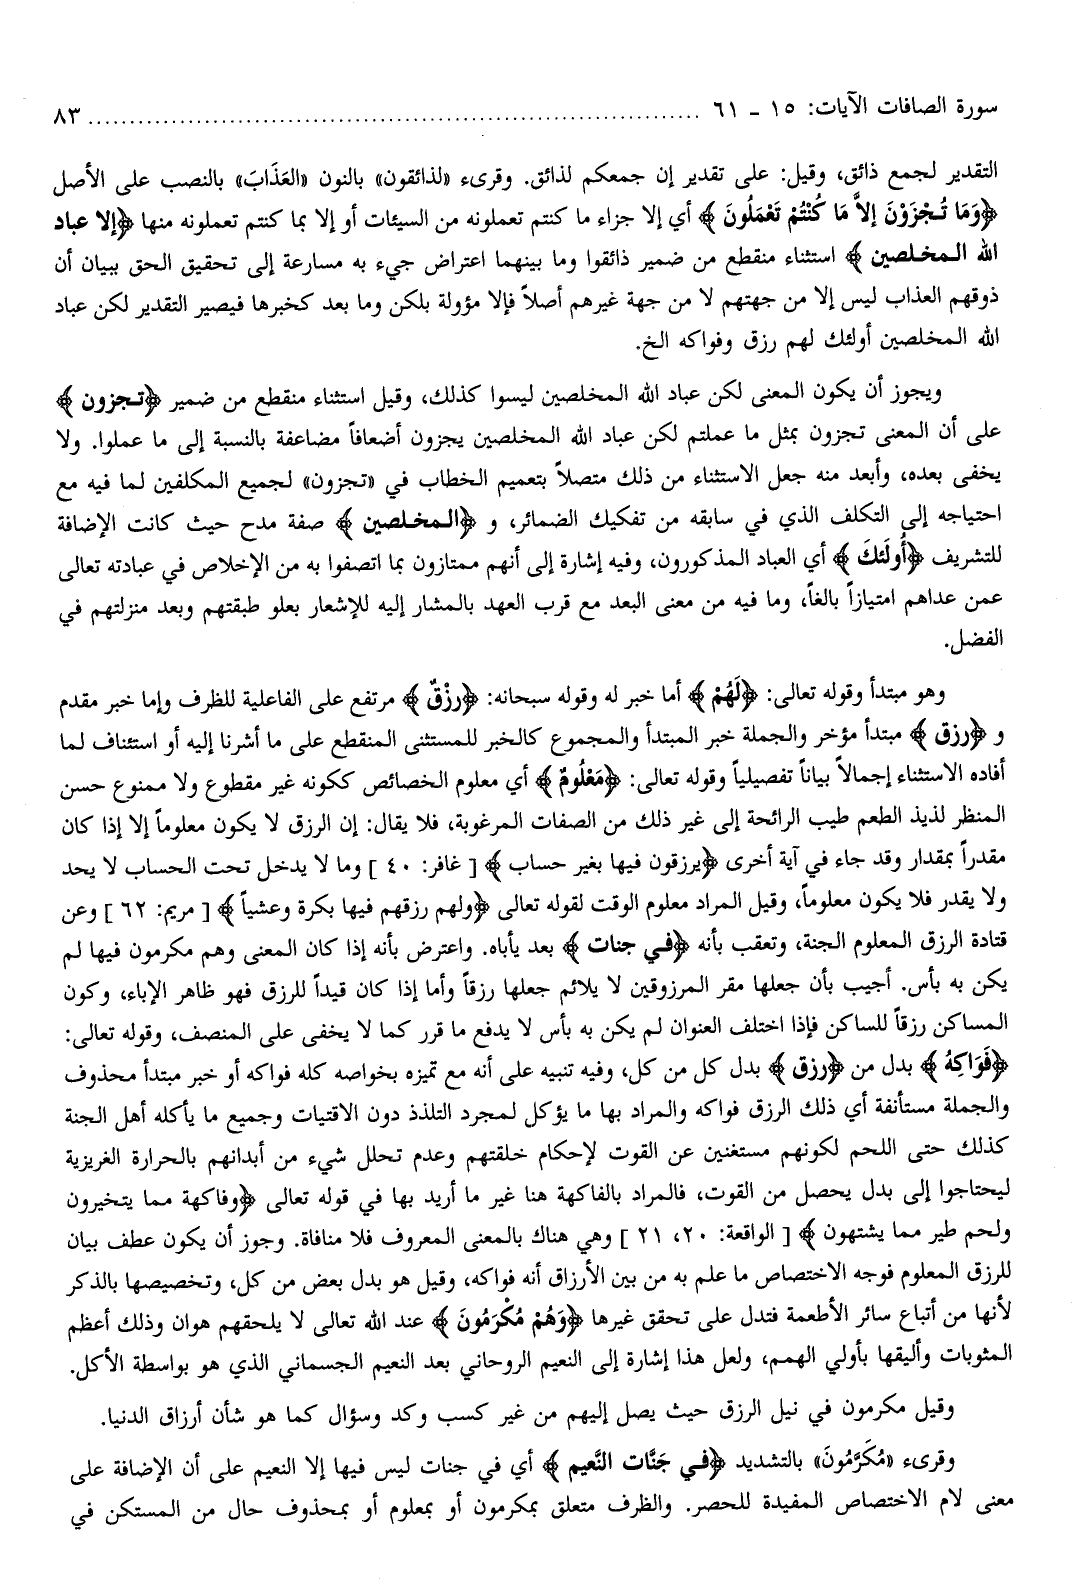 سورة الصافات الآيات: ١٥ - ٦١ ........................................ ٨٣
التقدير لجمع ذائق، وقيل: على تقدير إن جمعكم لذائق. وقرىء «لذائقون» بالنون «العَذَابَ» بالنصب على الأصل
﴿وَمَا تُجْزَوْنَ إلاَّ مَا كُنْتُمْ تَعْمَلُونَ﴾ أي إلا جزاء ما كنتم تعملونه من السيئات أو إلا بما كنتم تعملونه منها ﴿إلا عباد
الله المخلصين﴾ استثناء منقطع من ضمير ذائقوا وما بينهما اعتراض جيء به مسارعة إلى تحقيق الحق ببيان أن
ذوقهم العذاب ليس إلا من جهتهم لا من جهة غيرهم أصلاً فإلا مؤولة بلكن وما بعد كخبرها فيصير التقدير لكن عباد
الله المخلصين أولئك لهم رزق وفواكه الخ.
ويجوز أن يكون المعنى لكن عباد الله المخلصين ليسوا كذلك، وقيل استثناء منقطع من ضمير ﴿تجزون﴾
على أن المعنى تجزون بمثل ما عملتم لكن عباد الله المخلصين يجزون أضعافاً مضاعفة بالنسبة إلى ما عملوا. ولا
يخفى بعده، وأبعد منه جعل الاستثناء من ذلك متصلاً بتعميم الخطاب في «تجزون» لجميع المكلفين لما فيه مع
احتياجه إلى التكلف الذي في سابقه من تفكيك الضمائر، و ﴿المخلصين﴾ صفة مدح حيث كانت الإضافة
للتشريف ﴿أُولَئكَ﴾ أي العباد المذكورون، وفيه إشارة إلى أنهم ممتازون بما اتصفوا به من الإخلاص في عبادته تعالى
عمن عداهم امتيازاً بالغاً، وما فيه من معنى البعد مع قرب العهد بالمشار إليه للإشعار بعلو طبقتهم وبعد منزلتهم في
الفضل.
وهو مبتدأ وقوله تعالى: ﴿لَهُمْ﴾ أما خبر له وقوله سبحانه: ﴿رِزْقٌ﴾ مرتفع على الفاعلية للظرف وإما خبر مقدم
و ﴿رزق﴾ مبتدأ مؤخر والجملة خبر المبتدأ والمجموع كالخبر للمستثنى المنقطع على ما أشرنا إليه أو استئناف لما
أفاده الاستثناء إجمالاً بياناً تفصيلياً وقوله تعالى: ﴿مَعْلُومٌ﴾ أي معلوم الخصائص ككونه غير مقطوع ولا ممنوع حسن
المنظر لذيذ الطعم طيب الرائحة إلى غير ذلك من الصفات المرغوبة، فلا يقال: إن الرزق لا يكون معلوماً إلا إذا كان
مقدراً بمقدار وقد جاء في آية أخرى ﴿يرزقون فيها بغير حساب﴾ [ غافر: ٤٠ ] وما لا يدخل تحت الحساب لا يحد
ولا يقدر فلا يكون معلوماً، وقيل المراد معلوم الوقت لقوله تعالى ﴿ولهم رزقهم فيها بكرة وعشياً﴾ [ مريم: ٦٢ ] وعن
قتادة الرزق المعلوم الجنة، وتعقب بأنه ﴿في جنات﴾ بعد يأباه. واعترض بأنه إذا كان المعنى وهم مكرمون فيها لم
يكن به بأس. أجيب بأن جعلها مقر المرزوقين لا يلائم جعلها رزقاً وأما إذا كان قيداً للرزق فهو ظاهر الإباء، وكون
المساكن رزقاً للساكن فإذا اختلف العنوان لم يكن به بأس لا يدفع ما قرر كما لا يخفى على المنصف، وقوله تعالى:
﴿فَوَاكِهُ﴾ بدل من ﴿رزق﴾ بدل كل من كل، وفيه تنبيه على أنه مع تميزه بخواصه كله فواكه أو خبر مبتدأ محذوف
والجملة مستأنفة أي ذلك الرزق فواكه والمراد بها ما يؤكل لمجرد التلذذ دون الاقتيات وجميع ما يأكله أهل الجنة
كذلك حتى اللحم لكونهم مستغنين عن القوت لإحكام خلقتهم وعدم تحلل شيء من أبدانهم بالحرارة الغريزية
ليحتاجوا إلى بدل يحصل من القوت، فالمراد بالفاكهة هنا غير ما أريد بها في قوله تعالى ﴿وفاكهة مما يتخيرون
ولحم طير مما يشتهون﴾ [ الواقعة: ٢٠، ٢١ ] وهي هناك بالمعنى المعروف فلا منافاة. وجوز أن يكون عطف بيان
للرزق المعلوم فوجه الاختصاص ما علم به من بين الأرزاق أنه فواكه، وقيل هو بدل بعض من كل، وتخصيصها بالذكر
لأنها من أتباع سائر الأطعمة فتدل على تحقق غيرها ﴿وَهُمْ مُكْرَمُونَ﴾ عند الله تعالى لا يلحقهم هوان وذلك أعظم
المثوبات وأليقها بأولي الهمم، ولعل هذا إشارة إلى النعيم الروحاني بعد النعيم الجسماني الذي هو بواسطة الأكل.
وقيل مكرمون في نيل الرزق حيث يصل إليهم من غير كسب وكد وسؤال كما هو شأن أرزاق الدنيا.
وقرىء «مُكَرَّمُونَ» بالتشديد ﴿في جَنَّات النَّعيم﴾ أي في جنات ليس فيها إلا النعيم على أن الإضافة على
معنى لام الاختصاص المفيدة للحصر. والظرف متعلق بمكرمون أو بمعلوم أو بمحذوف حال من المستكن في